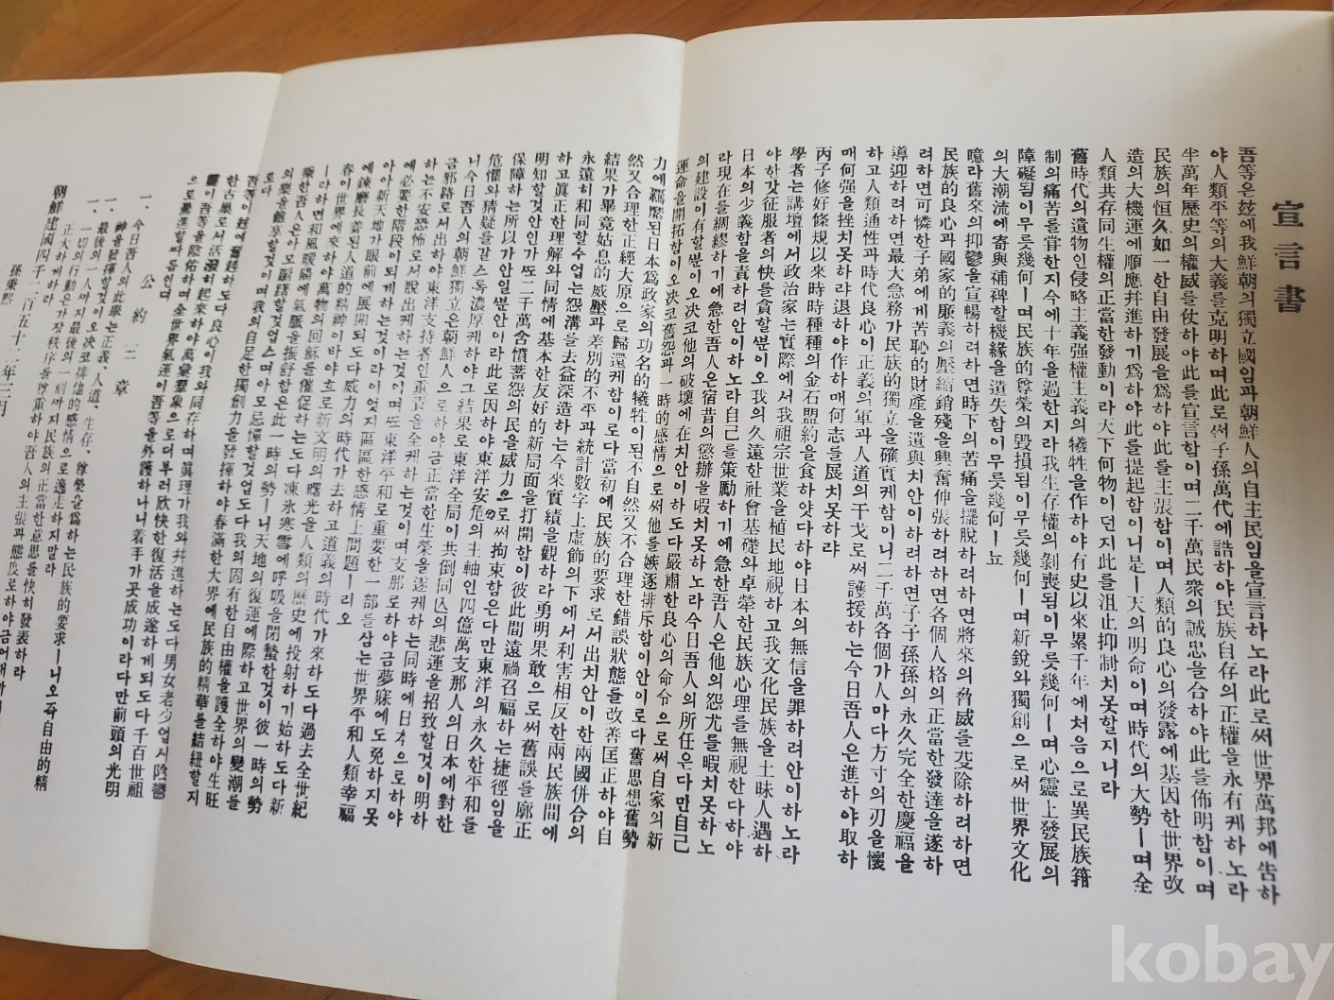 宣言書
吾等은玆에我鮮朝의獨立國임과朝鮮人의自主民임을宣言하노라此로써世界萬邦에告하
야人類平等의大義를克明하며此로써子孫萬代에誥하야民族自存의正權을永有케하노라
半萬年歷史의權威를仗하야此를宣言함이며二千萬民衆의誠忠을合하야此를佈明함이며
民族의恒久如一한自由發展을爲하야此를主張함이며人類的良心의發露에基因한世界改
造의大機運에順應幷進하기爲하야此를提起함이니是ㅣ天의明命이며時代의大勢ㅣ며全
人類共存同生權의正當한發動이라天下何物이던지此를沮止抑制치못할지니라
舊時代의遺物인侵略主義强權主義의犧牲을作하야有史以來累千年에처음으로異民族箝
制의痛苦를嘗한지今에十年을過한지라我生存權의剝喪됨이무릇幾何ㅣ며心靈上發展의
障礙됨이무릇幾何ㅣ며民族的尊榮의毀損됨이무릇幾何ㅣ며新銳와獨創으로써世界文化
의大潮流에寄與補裨할機緣을遺失함이무릇幾何ㅣ뇨
噫라舊來의抑鬱을宣暢하려하면時下의苦痛을擺脫하려하면將來의脅威를芟除하려하면
民族的良心과國家的廉義의壓縮銷殘을興奮伸張하려하면各個人格의正當한發達을遂하
려하면可憐한子弟에게苦恥的財產을遺與치안이하려하면子子孫孫의永久完全한慶福을
導迎하려하면最大急務가民族的獨立을確實케함이니二千萬各個가人마다方寸의刃을懷
하고人類通性과時代良心이正義의軍과人道의干戈로써護援하는今日吾人은進하야取하
매何强을挫치못하랴退하야作하매何志를展치못하랴
丙子修好條規以來時時種種의金石盟約을食하얏다하야日本의無信을罪하려안이하노라
學者는講壇에서政治家는實際에서我祖宗世業을植民地視하고我文化民族을土昧人遇하
야한갓征服者의快를貪할뿐이오我의久遠한社會基礎와卓犖한民族心理를無視한다하야
日本의少義함을責하려안이하노라自己를策勵하기에急한吾人은他의怨尤를暇치못하노
라現在를綢繆하기에急한吾人은宿昔의懲辦을暇치못하노라今日吾人의所任은다만自己
의建設이有할뿐이오決코他의破壞에在치안이하도다嚴肅한良心의命令으로써自家의新
運命을開拓함이오決코舊怨과一時的感情으로써他를嫉逐排斥함이안이로다舊思想舊勢
力에羈縻된日本爲政家의功名的犧牲이된不自然又不合理한錯誤狀態를改善匡正하야自
然又合理한正經大原으로歸還케함이로다當初에民族的要求로서出치안이한兩國併合의
結果가畢竟姑息的威壓과差別的不平과統計數字上虛飾의下에서利害相反한兩民族間에
永遠히和同할수업는怨溝를去益深造하는今來實績을觀하라勇明果敢으로써舊誤를廓正
하고眞正한理解와同情에基本한友好的新局面을打開함이彼此間遠禍召福하는捷徑임을
明知할것안인가또二千萬含憤蓄怨의民을威力으로써拘束함은다만東洋의永久한平和를
保障하는所以가안일뿐안이라此로因하야東洋安危의主軸인四億萬支那人의日本에對한
危懼와猜疑를갈스록濃厚케하야그結果로東洋全局이共倒同亡의悲運을招致할것이明하
니今日吾人의朝鮮獨立은朝鮮人으로하야금正當한生榮을遂케하는同時에日本으로하야
금邪路로서出하야東洋支持者인重責을全케하는것이며支那로하야금夢寐에도免하지못
하는不安恐怖로서脫出케하는것이며또東洋平和로重要한一部를삼는世界平和人類幸福
에必要한階段이되게하는것이라이엇지區區한感情上問題ㅣ리오
아아新天地가眼前에展開되도다威力의時代가去하고道義의時代가來하도다過去全世紀
에鍊磨長養된人道的精神이바야흐로新文明의曙光을人類의歷史에投射하기始하도다新
春이世界에來하야萬物의回穌를催促하는도다凍氷寒雪에呼吸을閉蟄한것이彼一時의勢
ㅣ라하면和風暖陽에氣脈을振舒함은此一時의勢ㅣ니天地의復運에際하고世界의變潮를
乘한吾人은아모躊躇할것업스며아모忌憚할것업도다我의固有한自由權을護全하야生旺
의樂을飽享할것이며我의自足한獨創力을發揮하야春滿한大界에民族的精華를結紐할지
로다
吾等이玆에奮起하도다良心이我와同存하며眞理가我와幷進하는도다男女老少업시陰鬱
한古巢로서活潑히起來하야萬彙羣象으로더부러欣快한復活을成遂하게되도다千百世祖
靈이吾等을陰佑하며全世界氣運이吾等을外護하나니着手가곳成功이라다만前頭의光明
으로驀進할따름인뎌
公約三章
一、今日吾人의此擧는正義、人道、生存、尊榮을爲하는民族的要求ㅣ니오즉自由的精
神을發揮할것이오決코排他的感情으로逸走하지말라
一、最後의一人까지最後의一刻까지民族의正當한意思를快히發表하라
一、一切의行動은가장秩序를尊重하야吾人의主張과態度로하야금어대까지
正大하게하라
朝鮮建國四千二百五十二年三月
孫秉熙
kobay